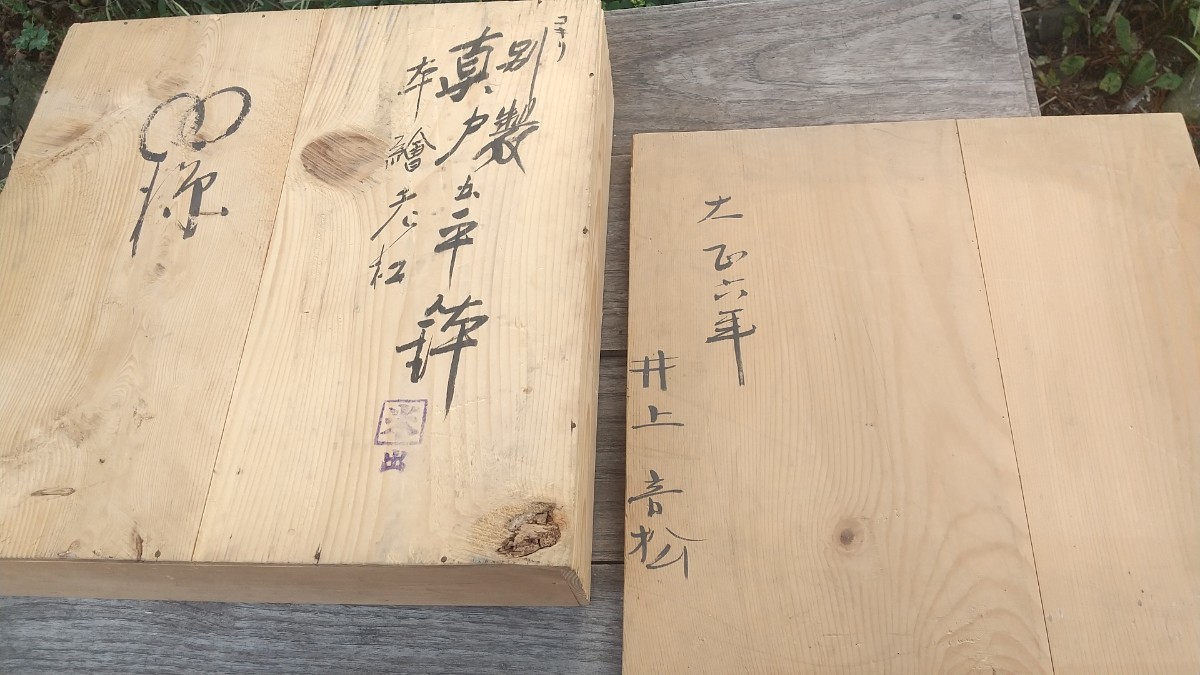 コキリ
別製
真戸五平鉢
本繪老松
出
大正六年
井上音松